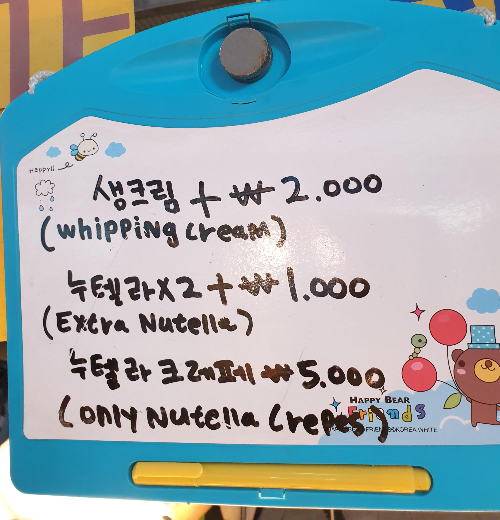 HAPPY!!
생크림 + ₩ 2.000
(whipping cream)
누텔라X2 + ₩1.000
(Extra Nutella)
누텔라 크레페 ₩5.000
(only Nutella Crepes)
HAPPY BEAR
Friends